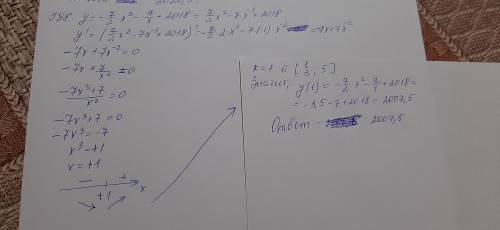 y = -7/2 x² - 7/x + 2018 = 7/2 x² - 7x⁻¹ + 2018
y' = (7/2 x² - 7x⁻¹ + 2018)' = -7/2 · 2x¹ - 7·(-1)·x⁻² = -7x + 7x⁻²
-7x + 7x⁻² = 0
-7x + 7/x² = 0
-7x³+7/x² = 0
-7x³ + 7 = 0
-7x³ = -7
x³ = +1
x = +1
- + x
+1
x = 1 ∈ [1/6, 5]
Значит, y(1) = -7/2 x² - 7/1 + 2018 =
= -3,5 - 7 + 2018 = 2007,5
Ответ 2007,5